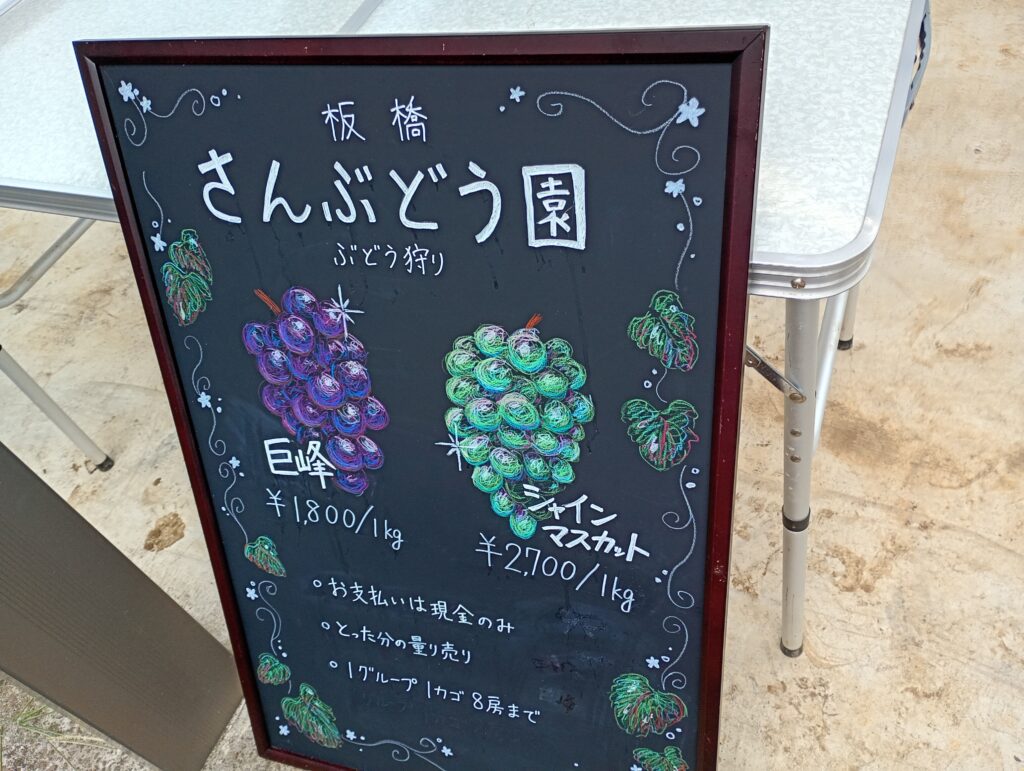 板橋
さんぶどう園
ぶどう狩り
巨峰
¥1,800/1kg
シャイン
マスカット
¥2,700/1kg
○お支払いは現金のみ
○とった分の量り売り
○1グループ1カゴ8房まで